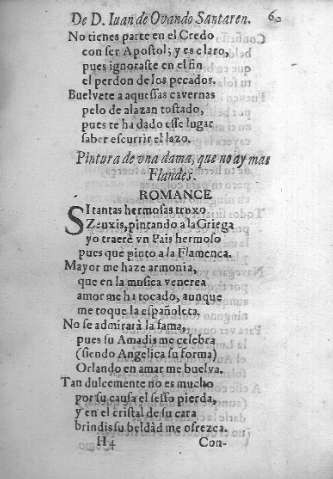 De D. Iuan de Ovando Santaren. 60
No tienes parte en el Credo
con ser Apostol; y es claro,
pues ignoraste en el fin
el perdon de los pecados.
Buelvete a aquessas cavernas
pelo de alazan tostado,
pues te ha dado esse lugar
saber escurrir el lazo.
Pintura de una dama, que no ay mas
Flandes.
ROMANCE
SI tantas hermosas truxo
Zeuxis, pintando a la Griega
yo traerè vn Pais hermoso
pues que pinto a la Flamenca.
Mayor me haze armonia,
que en la musica venerea
amor me ha tocado, aunque
me toque la españoleta,
No se admirarà la fama,
pues su Amadis me celebra
(siendo Angelica su forma)
Orlando en amar me buelva.
Tan dulcemente no es mucho
por su causa el sesso pierda,
y en el cristal de su cara
brindis su beldàd me ofrezca.
H4 Con-